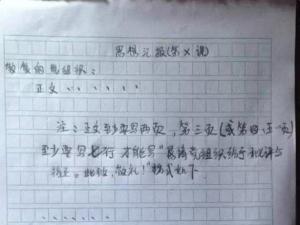 思想汇报(第X课)
敬爱的党组织:
正文......
注:正文至少要写两页,第三页(或第四、五页)
至少要写七行才能写"恳请党组织给予批评与
指正。此致,敬礼!"格式如下
......